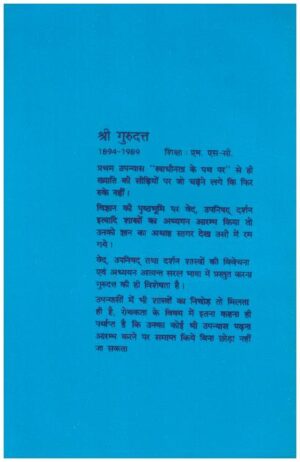 श्री गुरुदत्त
1894-1989 शिक्षा : एम. एस-सी.
प्रथम उपन्यास "स्वाधीनता के पथ पर" से ही
ख्याति की सीढ़ियों पर जो चढ़ने लगे कि फिर
रुके नहीं।
विज्ञान की पृष्ठभूमि पर वेद, उपनिषद् दर्शन
इत्यादि शास्त्रों का अध्ययन आरम्भ किया तो
उनको ज्ञान का अथाह सागर देख उसी में रम
गये।
वेद, उपनिषद् तथा दर्शन शास्त्रों की विवेचना
एवं अध्ययन अत्यन्त सरल भाषा में प्रस्तुत करना
गुरुदत्त की ही विशेषता है।
उपन्यासों में भी शास्त्रों का निचोड़ तो मिलता
ही है, रोचकता के विषय में इतना कहना ही
पर्याप्त है कि उनका कोई भी उपन्यास पढ़ना
आरम्भ करने पर समाप्त किये बिना छोड़ा नहीं
जा सकता